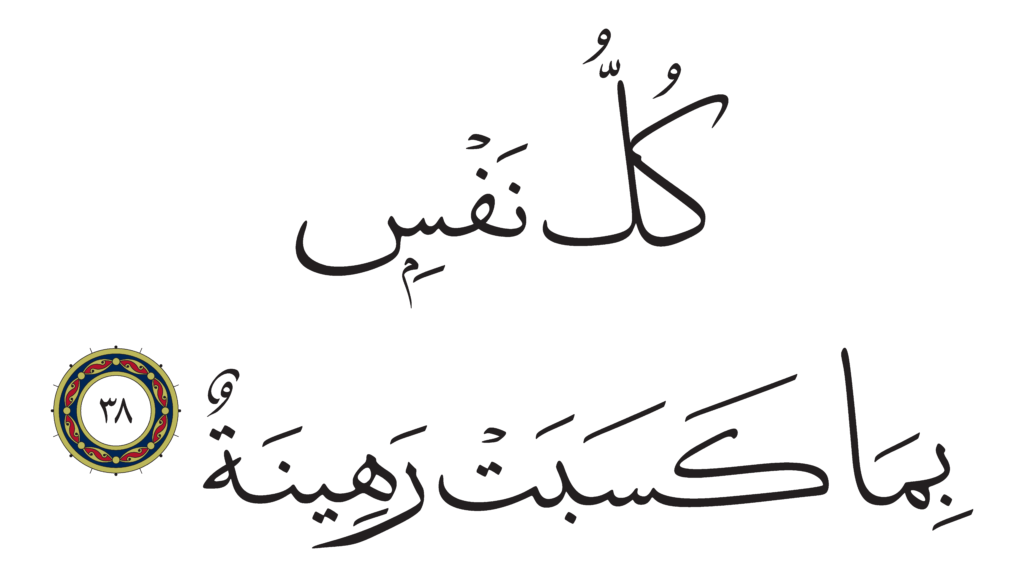 كُلُّ نَفۡسِۭ
بِمَا كَسَبَتۡ رَهِينَةٌ ٣٨